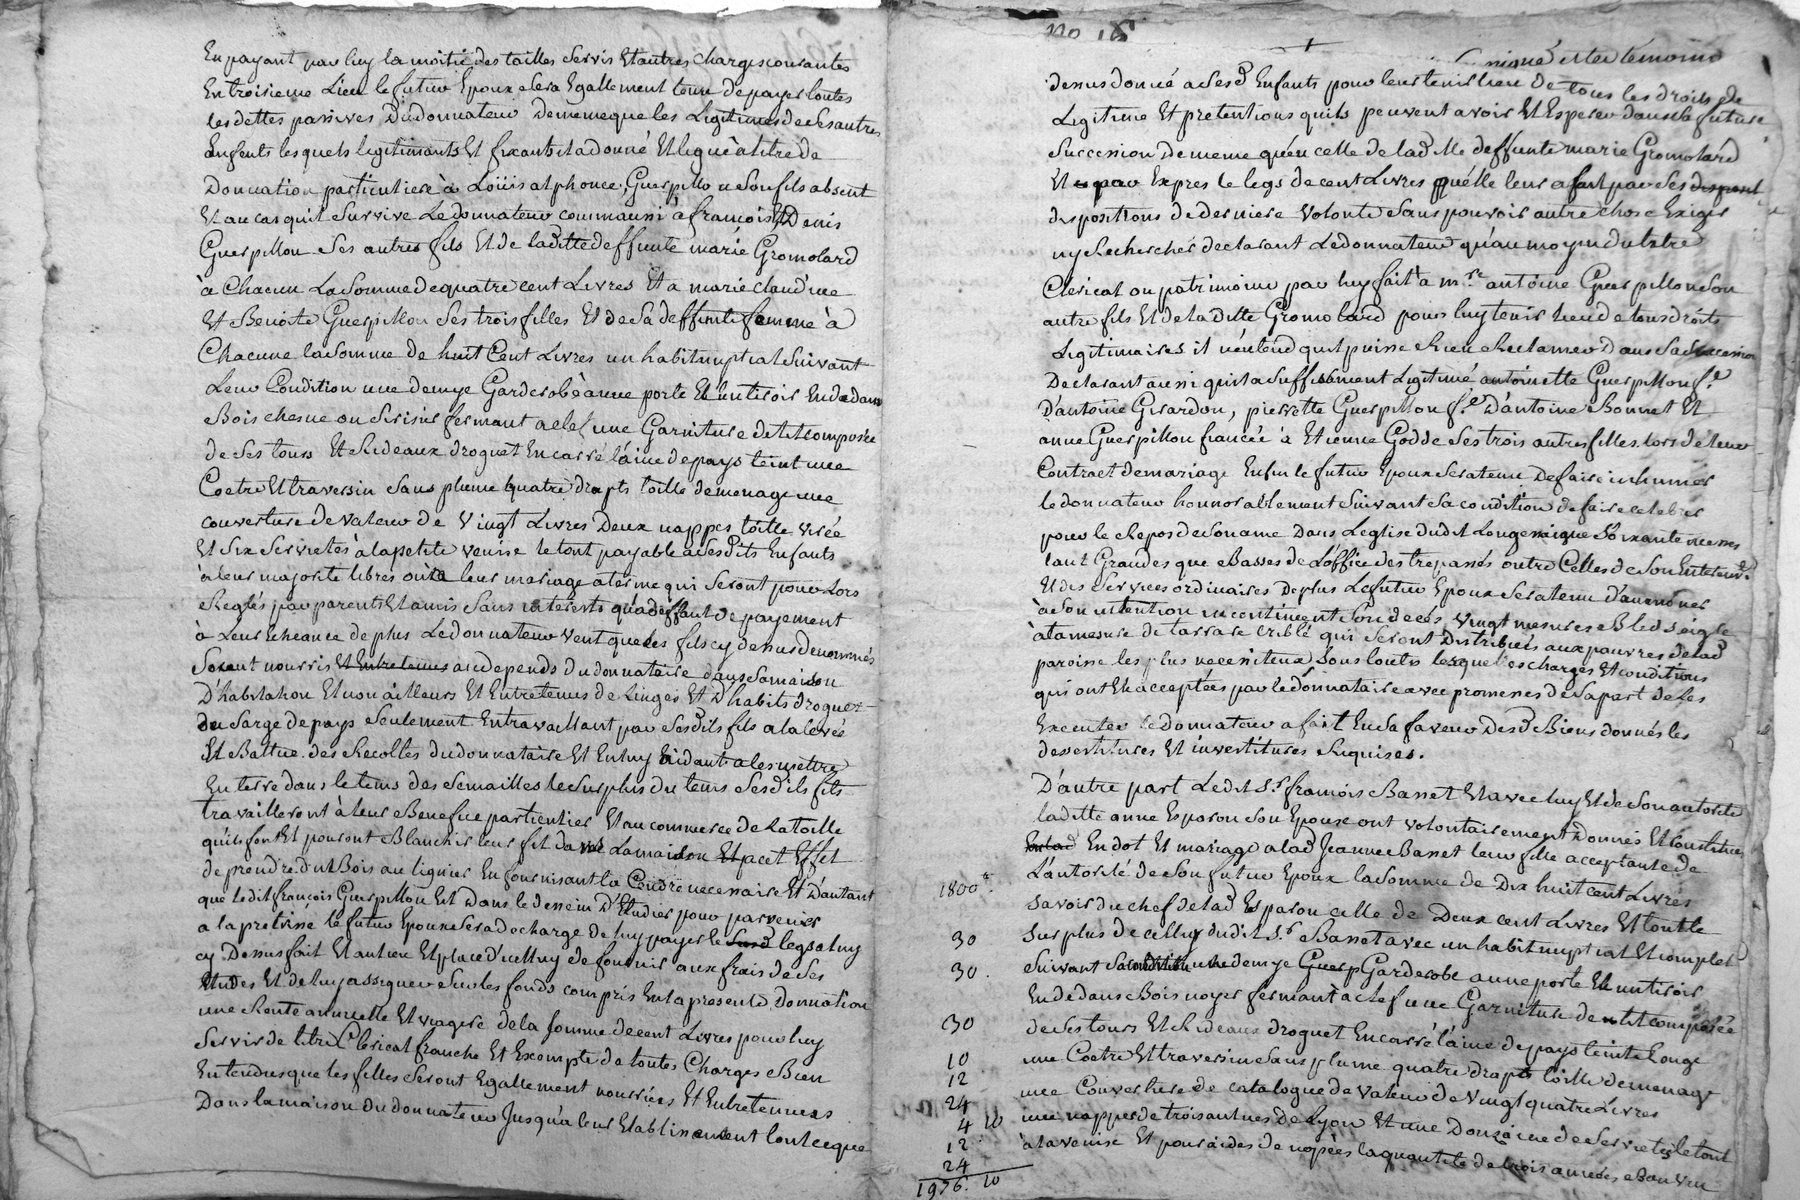 En payant par luy la moitié des tailles servis Et autres Charges courantes
En troisieme Lieu le futur Epoux sera Egallement tenu de payer toutes
les dettes passives Du donnateur de meme que les Legitimes de ses autres
Enfents lesquels legitimants Et fixants il a donné Et legué à titre de
Donnation particuliere à Loüis alphonce Guerpillon son fils absent
Et au cas quil survive Le donnateur comm aussi à françois Et Denis
Guerpillon ses autres fils Et de laditte deffunte marie Gromolard
à Chacun La somme de quatre cent Livres Et a marie claudine
Et Benoite Guerpillon ses trois filles Et de sa deffunte femme à
Chacune la somme de huit Cent Livres un habit nuptial suivant
Leur Condition une demye Garderobe à une porte Et un tiroir En dedans
Bois chesne ou serisier fermant a clef une Garniture de lit composée
de ses tours Et Rideaux droguet En carré laine de pays teint une
Coetre Et traversin sans plume quatre drapts toille de menage une
couverture de valeur de vingt Livres Deux nappes toille
Et six servietes à la petite venise le tout payable à ses dits Enfants
à leur majorité libres ou à leur mariage a terme qui seront pour Lors
Reglés par parents Et amis sans interests qu'a deffaut de payement
à Leur Echeance de plus Le donnateur veut que les fils cy dessus denommés
soient nourris Et Entretenus au depends du donnataire dans sa maison
D'habitation Et non ailleurs Et Entretenus de Linges Et d'habits droguet
ou sarge de pays seulement En travaillant par sesdits fils a la levée
Et Battue des Recoltes du donnataire Et En luy aidant a les mettre
En terre dans le tems des semailles le surplus du tems sesdits fils
travailleront à leur Benefice particulier Et au commerce de La toille
qu'ils font Et pouront Blanchir leur fil dans La maison Et a cet Effet
de prendre du Bois au lignier En fournissant la Cendre necessaire Et D'autant
que ledit françois Guerpillon Est Dans le dessein D'Etudier pour parvenir
a la pretrise le futur Epoux sera decharge de luy payer le legs a luy
cy Dessus fait Et au lieu Et place d'icelluy de fournir aux frais de ses
Etudes Et de luy assigner sur les fonds compris En la presente donnation
une Rente annuelle Et viagere de la somme de cent Livres pour luy
servir de titre Clerical franche Et Exempte de toutes Charges Bien
Entendu que les filles seront Egallement nourries Et Entretenues
Dans la maison du donnateur Jusqu'a leur Etablissement tout ce que
No 15
signé Et les temoins
dessus donné a sesd Enfants pour leur tenir lieu De tous les droits de
Legitime Et pretentions quils peuvent avoir Et Esperer dans la future
succession De meme qu'en celle de lad Mle deffunte marie Gromolard
Et par Expres le legs de cent Livres quelle leur a fait par ses
dispositions de derniere volonté sans pouvoir autre chose Exiger
ny Rechercher declarant Le donnateur qu'au moyen du titre
Clerical ou patrimoine par luy fait à mre antoine Guerpillon son
autre fils Et de la ditte Gromolard pour luy tenir lieu de tous droits
Legitimaires il n'entend quil puisse Rien Reclamer Dans sa succession
Declarant aussi quil a suffisament Legitimé antoinette Guerpillon fe
D'antoine Girardon, pierrette Guerpillon fe D'antoine Bonnet Et
anne Guerpillon fiancée à Etienne Godde ses trois autres filles lors de leur
Contract de mariage Enfin le futur Epoux sera tenu De faire inhumer
le donnateur honnorablement suivant sa condition de faire celebrer
pour le Repos de son ame Dans L'eglise dudit Longessaigne soixante messes
tant Grandes que Basses de L'office des trepassés outre Celles de son Enterremt
Et des services ordinaires De plus Le futur Epoux sera tenu d'aumoner
à son intention incontinent son decés vingt mesures Bled seigle
à la mesure de tarrare criblé qui seront Distribuées aux pauvres de lad
paroisse les plus necessiteux sous toutes lesquelles charges Et conditions
qui ont Eté acceptées par le donnataire avec promesses de sa part de Les
Executer le donnateur a fait En sa faveur Desd Biens donnés les
devestitures Et investitures Requises.
D'autre part Ledit Sr françois Basset Et avec luy Et de son autorité
laditte anne Esparon son Epouse ont volontairement Donnés Et Constitués
En dot Et mariage a lad Jeanne Basset leur fille acceptante de
L'autorité de son futur Epoux la somme de Dix huit cent Livres
1800
savoir du chef de lad Esparon celle de Deux cent Livres Et tout le
30 surplus de celluy dudit Sr Basset avec un habit nuptial Et complet
30 suivant sa condition une demye Garderobe a une porte Et un tiroir
En dedans Bois noyer fermant à clef une Garniture de lit composée
30 de ses tours Et Rideaux droguet En carré laine de pays teinte Rouge
10 une Coetre Et traversin sans plume quatre drapts toille de menage
12 une Couverture de catalogne de valeur de vingt quatre Livres
24 une nappe de trois aunes de Lyon Et une Douzaine de serviettes le tout
4 10 à la venise Et pour aides de nopces la quantité de trois années Bon vin
12
24
1976. 10